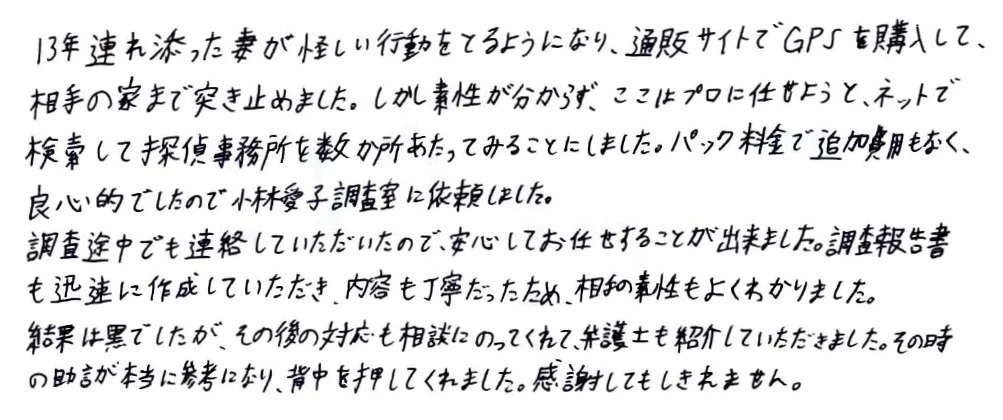 13年連れ添った妻が怪しい行動をとるようになり、通販サイトでGPSを購入して、
相手の家まで突き止めました。しかし素性が分からず、ここはプロに任せようと、ネットで
検索して探偵事務所を数か所あたってみることにしました。パック料金で追加費用もなく、
良心的でしたので小林愛子調査室に依頼しました。
調査途中でも連絡していただいたので、安心してお任せすることが出来ました。調査報告書
も迅速に作成していただき、内容も丁寧だったため、相手の素性もよくわかりました。
結果は黒でしたが、その後の対応も相談にのってくれて、弁護士も紹介していただきました。その時
の助言が本当に参考になり、背中を押してくれました。感謝してもしきれません。